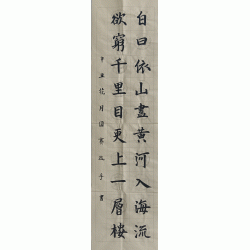 白日依山盡黃河入海流
欲窮千里目更上一層樓
辛丑花月
書